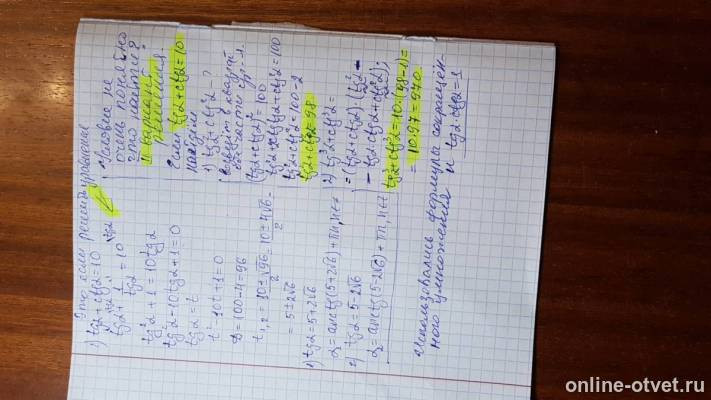 Это, если решать уравнение
1) tgα + ctgα = 10
tgα + 1/tgα = 10 |·tgα
tg²α + 1 = 10tgα
tg²α - 10tgα + 1 = 0
tgα = t
t² - 10t + 1 = 0
D = 100 - 4 = 96
t₁,₂ = (10 ± √96)/2 = (10 ± 4√6)/2 =
= 5 ± 2√6
1) tgα = 5 + 2√6
α₁ = arctg(5 + 2√6) + πn, n∈Z
2) tgα = 5 - 2√6
α₂ = arctg(5 - 2√6) + πn, n∈Z
Условие не
очень понятно
что найти?
II вариант
решения.
Если tgα + ctgα = 10
найти
1) tg²α + ctg²α - ?
Возвести в квадрат
(tgα + ctgα)² = 100
tg²α + 2tgα·ctgα + ctg²α = 100
tg²α + ctg²α = 100 - 2
tg²α + ctg²α = 98
2) tg³α + ctg³α =
= (tgα + ctgα)·(tg²α -
- tgα·ctgα + ctg²α);
tg³α + ctg³α = 10·(98 - 1) =
= 10·97 = 970
Использовались формулы сокращен-
ного умножения и tgα·ctgα = 1
online-otvet.ru